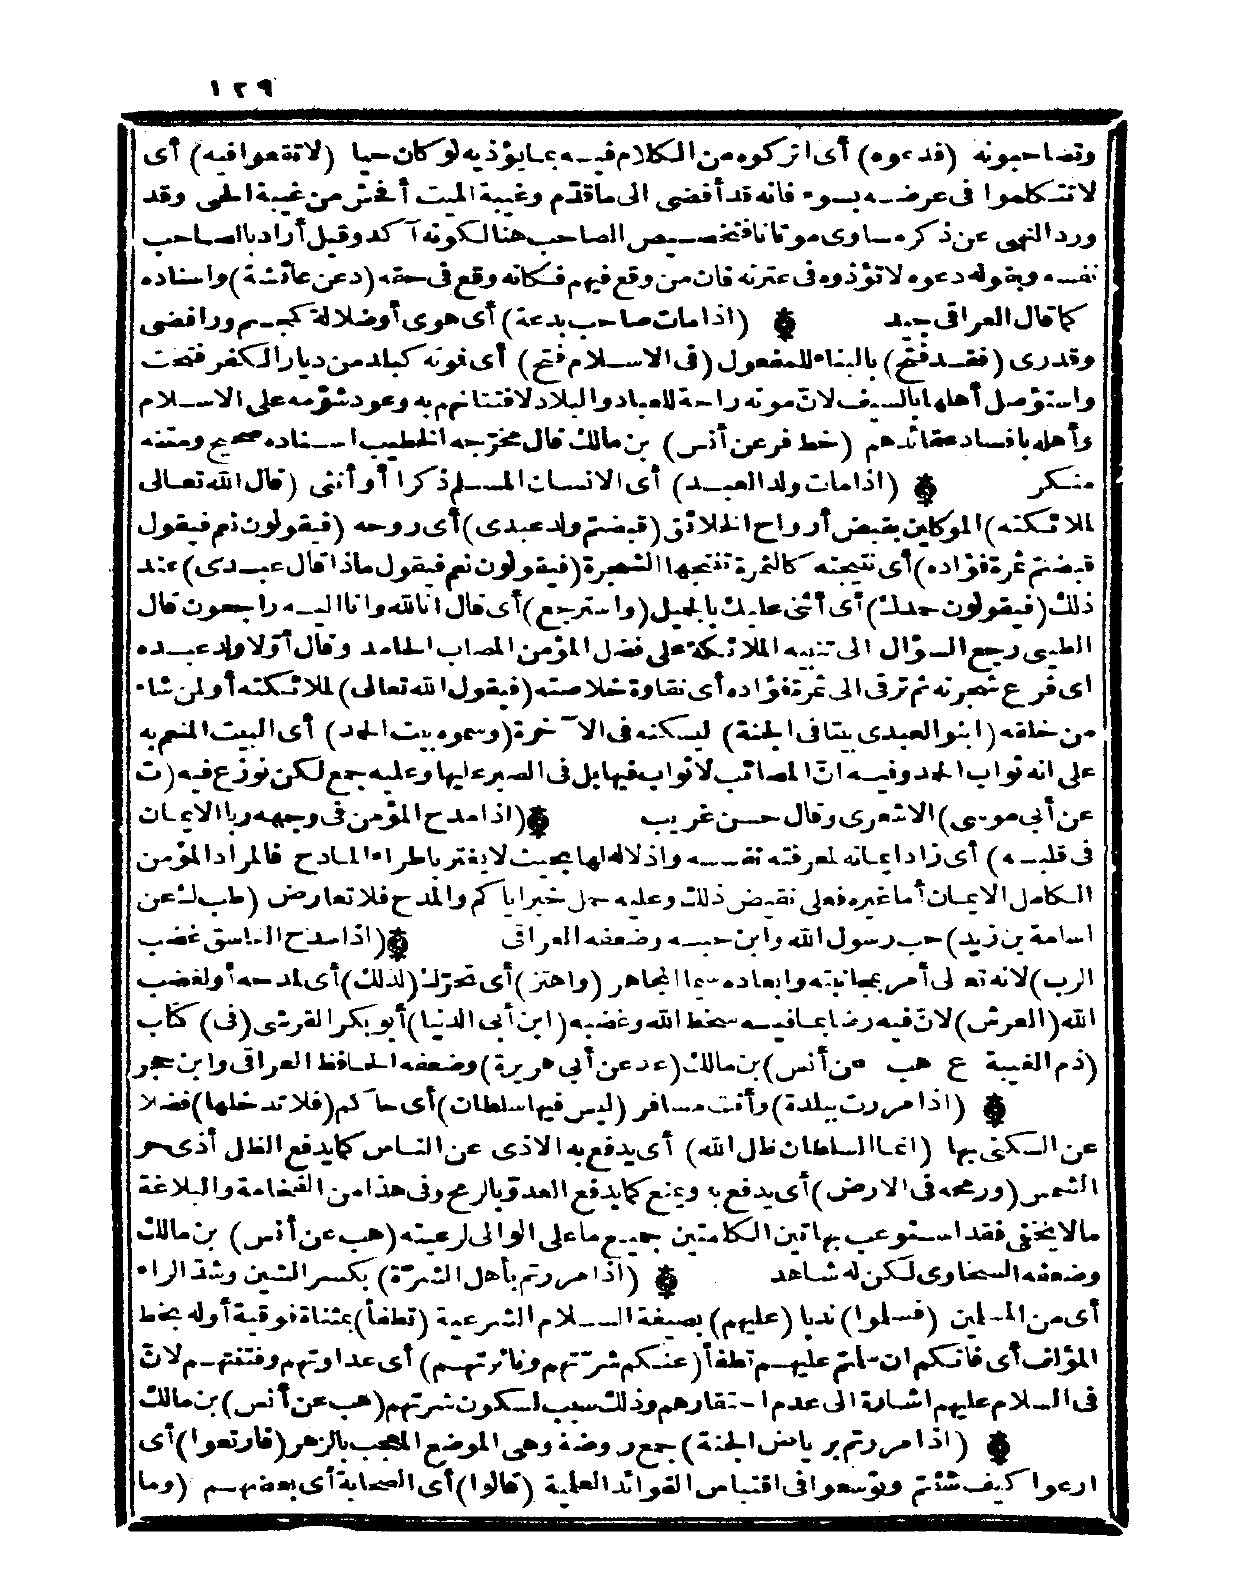 ١٢٩
وتصاحبونه (فدعوه) أى اتركوه من الكلام فيه بما يؤذيه لو كان حيا (لا تقعوا فيه) أى
لا تتكلموا فى عرضه بسوء فانه قد أفضى الى ما قدّم وغيبة الميت أفحش من غيبة الحى وقد
ورد النهى عن ذكر مساوى موتانا فتخصيص الصاحب هنا لكونه آكد وقيل أراد بالصاحب
نفسه وبقوله دعوه لا تؤذوه فى عترته فان من وقع فيهم فكانه وقع فى حقه (د عن عائشة) واسناده
كما قال العراقى جيد (اذا مات صاحب بدعة) أى هوى أو ضلالة كجسم ورافضى
وقدرى (فقد فتح) بالبناء للمفعول (فى الاسلام فتح) أى موته كبلد من ديار الكفر فتحت
واستؤصل أهلها بالسيف لانّ موته راحة للعباد والبلاد لافتتانهم به وعود شؤمه على الاسلام
وأهله بافساد عقائدهم (خط فر عن أنس) بن مالك قال مخرّجه الخطيب اسناده صحيح ومتنه
منكر (اذا مات ولد العبد) أى الانسان المسلم ذكرا أو أنثى (قال الله تعالى
لملائكته) الموكلين بقبض أرواح الخلائق (قبضتم ولد عبدى) أى روحه (فيقولون نعم فيقول
قبضتم ثمرة فؤاده) أى نتيجته كالثمرة تنتجها الشجرة (فيقولون نعم فيقول ماذا قال عبدى) عند
ذلك (فيقولون حمدك) أى أثنى عليك بالجميل (واسترجع) أى قال انا لله وانا اليه راجعون قال
الطيبى رجع السؤال الى تنبيه الملائكة على فضل المؤمن المصاب الحامد وقال أوّلا ولد عبده
اى فرع شجرته ثم ترقى الى ثمرة فؤاده أى نقاوة خلاصته (فيقول الله تعالى) لملائكته أو لمن شاء
من خلقه (ابنوا لعبدى بيتا فى الجنة) ليسكنه فى الآخرة (وسموه بيت الحمد) أى البيت المنعم به
على انه ثواب الحمد وفيه انّ المصائب لا ثواب فيها بل فى الصبر عليها وعليه جمع لكن نوزع فيه (ت
عن أبى موسى) الاشعرى وقال حسن غريب (اذا مدح المؤمن فى وجهه ربا الايمان
فى قلبه) أى زاد ايمانه لمعرفته نفسه واذلاله لها بحيث لا يغتر باطراء المادح فالمراد المؤمن
الكامل الايمان أما غيره فعلى نقيض ذلك وعليه حمل خبر اياكم والمدح فلا تعارض (طب ك عن
اسامة بن زيد) حب رسول الله وابن حبه وضعفه العراقى (اذا مدح الفاسق غضب
الرب) لانه تعالى أمر بمجانبته وابعاده سيما المجاهر (واهتز) أى تحرّك (لذلك) أى لمدحه أو لغضب
الله (العرش) لانّ فيه رضا بما فيه سخط الله وغضبه (ابن أبى الدنيا) أبو بكر القرشى (فى) كتاب
(ذم الغيبة ع هب عن أنس) بن مالك (عد عن أبى هريرة) وضعفه الحافظ العراقى وابن حجر
(اذا مررت ببلدة) وأنت مسافر (ليس فيها سلطان) أى حاكم (فلا تدخلها) فضلا
عن السكنى بها (انما السلطان ظل الله) أى يدفع به الاذى عن الناس كما يدفع الظل أذى حر
الشمس (ورمحه فى الارض) أى يدفع به ويمنع كما يدفع العدوّ بالرمح وفى هذا من الفخامة والبلاغة
مالا يخفى فقد استوعب بهاتين الكلمتين جميع ما على الوالى لرعيته (هب عن أنس) بن مالك
وضعفه السخاوى لكن له شاهد (اذا مررتم بأهل الشرّة) بكسر الشين وشدّ الراء
أى من المسلمين (فسلموا) ندبا (عليهم) بصيغة السلام الشرعية (تطفأ) بمثناة فوقية أوله بخط
المؤلف أى فانكم ان سلمتم عليهم تطفأ (عنكم شرّتهم ونائرتهم) أى عداوتهم وفتنتهم لانّ
فى السلام عليهم اشارة الى عدم احتقارهم وذلك سبب لسكون شرتهم (هب عن أنس) بن مالك
(اذا مررتم برياض الجنة) جمع روضة وهى الموضع المعجب بالزهر (فارتعوا) أى
ارعوا كيف شئتم وتوسعوا فى اقتباس الفوائد العلمية (قالوا) أى الصحابة أى بعضهم (وما